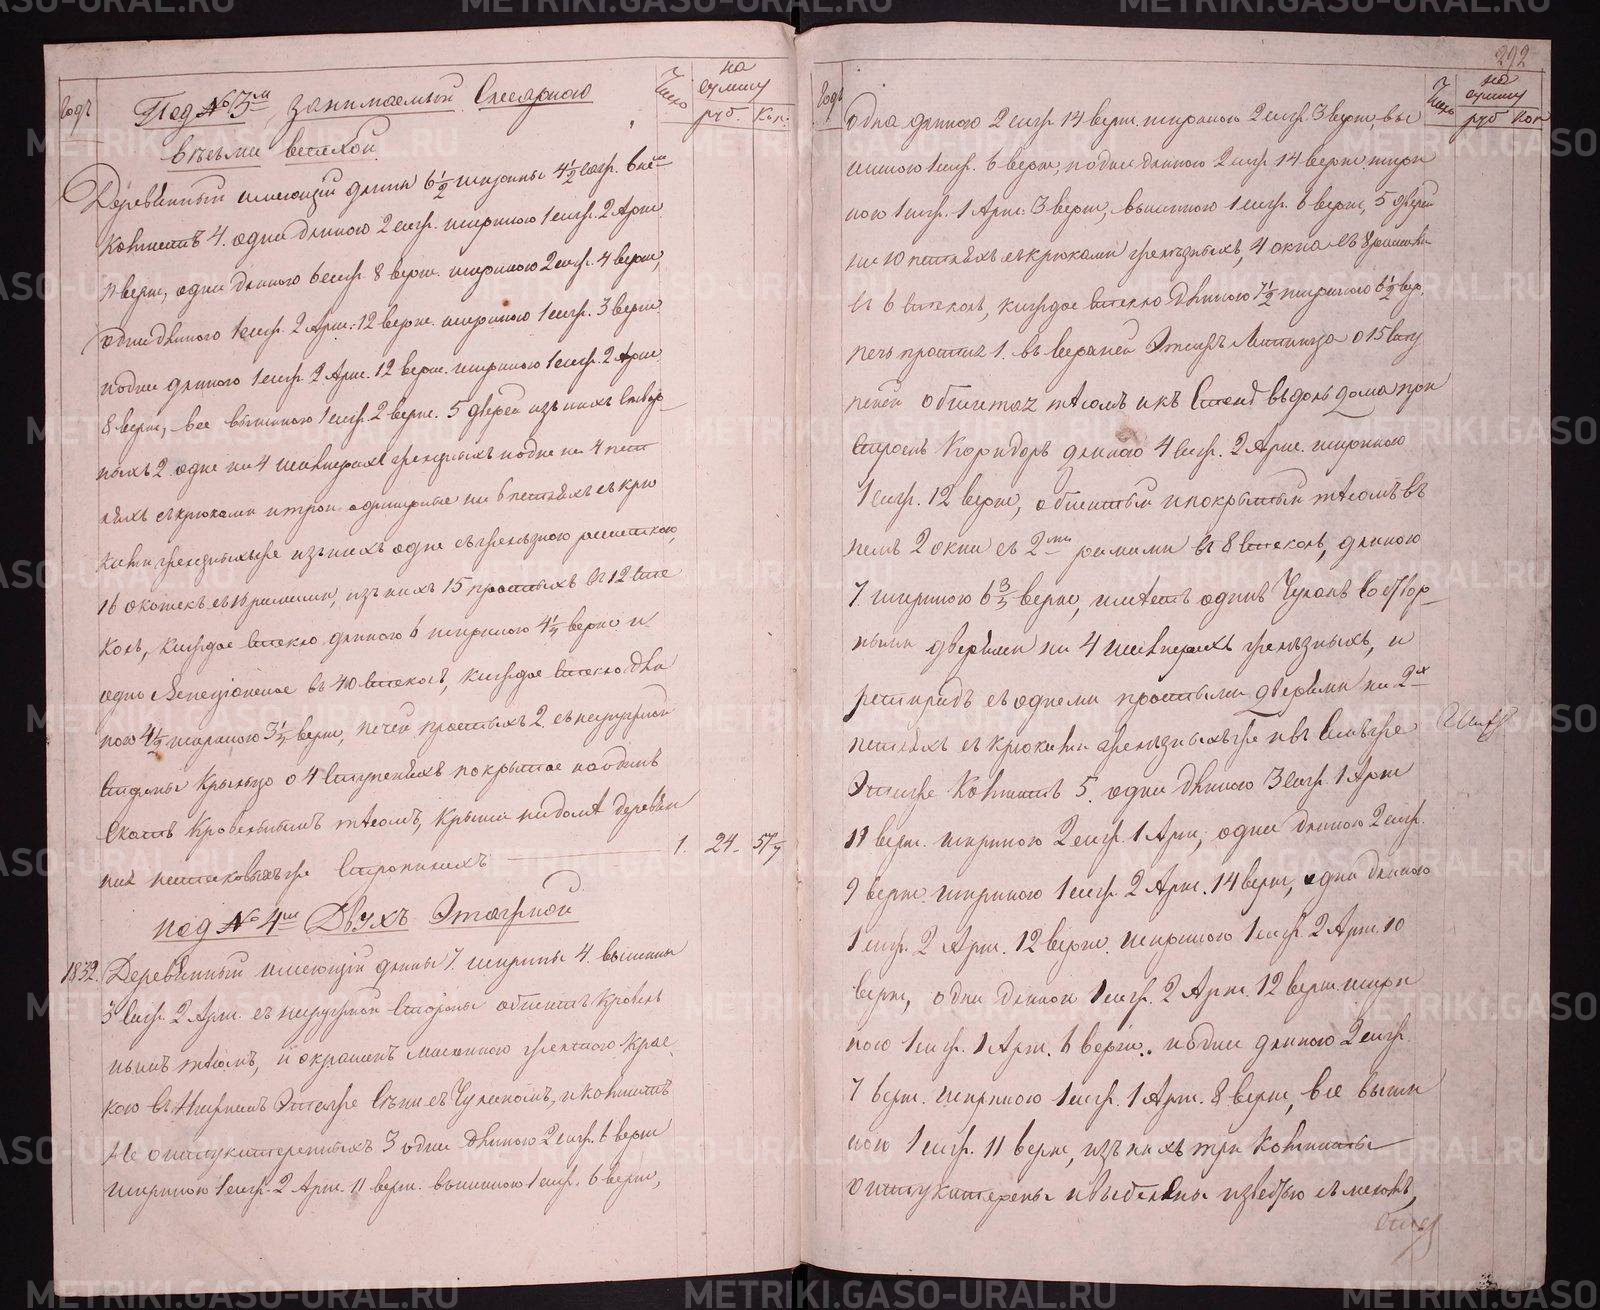 Годъ
Число
на
сумму
руб. Коп.
Под №3м занимаемый Слесарною
весьма ветхой
Деревянный имеющій длины 6½ ширины 4½ саж. въ нем
Комнатъ 4. одна длиною 2 саж. шириною 1 саж. 2 Арш
верш, одна длиною 6 саж 8 верш. шириною 2 саж. 4 верш,
одна длиною 1 саж. 2 Арш. 12 верш. шириною 1 саж. 3 верш
и одна длиною 1 саж. 2 Арш. 12 верш. шириною 1 саж. 2 Арш
8 верш, все вышиною 1 саж. 2 верш. 5 дверей изъ нихъ створ
ныхъ 2 одне на 4 шалнерахъ железныхъ и одне на 4 пет
ляхъ съ крюками и трои одинарые на 6 петляхъ съ крю
ками железными изъ нихъ одне съ железною решеткою,
16 окошекъ съ рамами, изъ нихъ 15 простыхъ въ 12 сте
колъ, каждое стекло длиною 6 шириною 4½ верш и
одно Венеціонское въ 40 стеколъ, каждое стекло дли
ною 4½ шириною 3½ верш, печей простыхъ 2. съ наружной
стороны Крыльцо о 4 ступеняхъ покрытое на одинъ
скатъ Кровельнымъ тесомъ, Крыша на доме деревян
ная на таковыхъ же стропилахъ 1. 24 57
под №4м Двухъ Этажной
1832. Деревянный имеющій длины 7. ширины 4. вышины
3 саж. 2 Арш. съ наружной стороны обшитъ Кровель
нымъ тесомъ, и окрашенъ масленою желтою Крас
кою въ Нижнемъ Этаже Сени съ Чуланомъ, и комнатъ
не оштукатуренныхъ 3 одна длиною 2 саж. 6 верш
шириною 1 саж. 2 Арш. 11 верш. вышиною 1 саж. 6 верш,
292
Годъ
Число
на
сумму
руб Коп
одна длиною 2 саж. 14 верш. шириною 2 саж. 3 верш, вы
шиною 1 саж. 6 верш, и одна длиною 2 саж 14 верш шири
ною 1 саж. 1 Арш. 3 верш, вышиною 1 саж. 6 верш, 5 дверей
на 10 петляхъ съ крюками железныхъ, 4 окна съ 8 рамами
въ 6 стеколъ, каждое стекло длиною 7½ шириною 6½ вер.
печь простая 1. въ верхней Этажъ Лестница о 15 сту
пеней обшитая тесомъ и къ Стене вдоль дома при
строенъ Коридоръ длиною 4 саж. 2 Арш. шириною
1 саж. 12 верш, обшитый и покрытый тесомъ въ
немъ 2 окна съ 2мя рамами въ 8 стеколъ, длиною
7. шириною 6 верш, имеетъ одинъ Чуланъ со створ
ными дверями на 4 шалнерахъ железныхъ, и
ретирадъ съ одними простыми дверями на 2х
петляхъ съ крюками железныхъ же и въ Семъ же
Этаже Комнатъ 5. одна длиною 3 саж. 1 Арш
11 верш. шириною 2 саж. 1 Арш, одна длиною 2 саж.
9 верш шириною 1 саж 2 Арш. 14 верш, одна длиною
1 саж. 2 Арш. 12 верш. шириною 1 саж. 2 Арш. 10
верш, одна длиною 1 саж. 2 Арш. 12 верш шири
ною 1 саж. 1 Арш. 6 верш. и одна длиною 2 саж.
7 верш. шириною 1 саж. 1 Арш. 8 верш, все выши
ною 1 саж. 11 верш, изъ нихъ три комнаты
оштукатурены и выбелены известью съ меломъ,